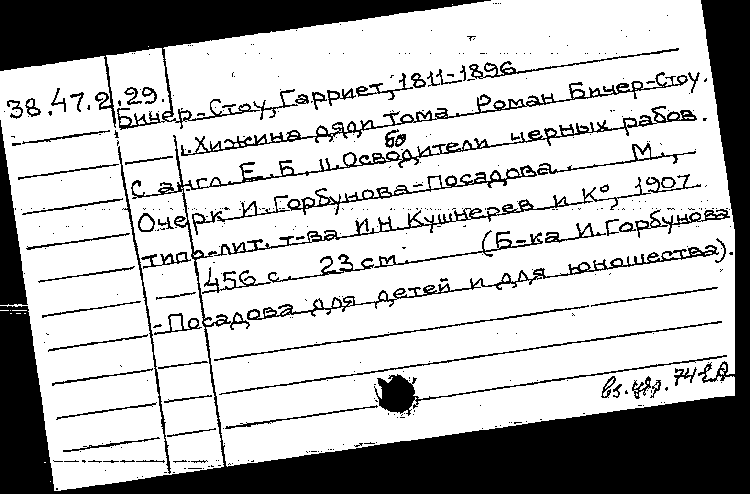 38.47.2.29.
Бичер-Стоу, Гарриет, 1811-1896
1. Хижина дяди Тома. Роман Бичер-Стоу.
с англ. Е.Б. II. Освободители черных рабов.
Очерк И. Горбунова-Посадова. М.,
типо-лит. т-ва И.Н. Кушнерев и К°, 1907
456 с. 23 см. (Б-ка И. Горбунова
-Посадова для детей и для юношества).